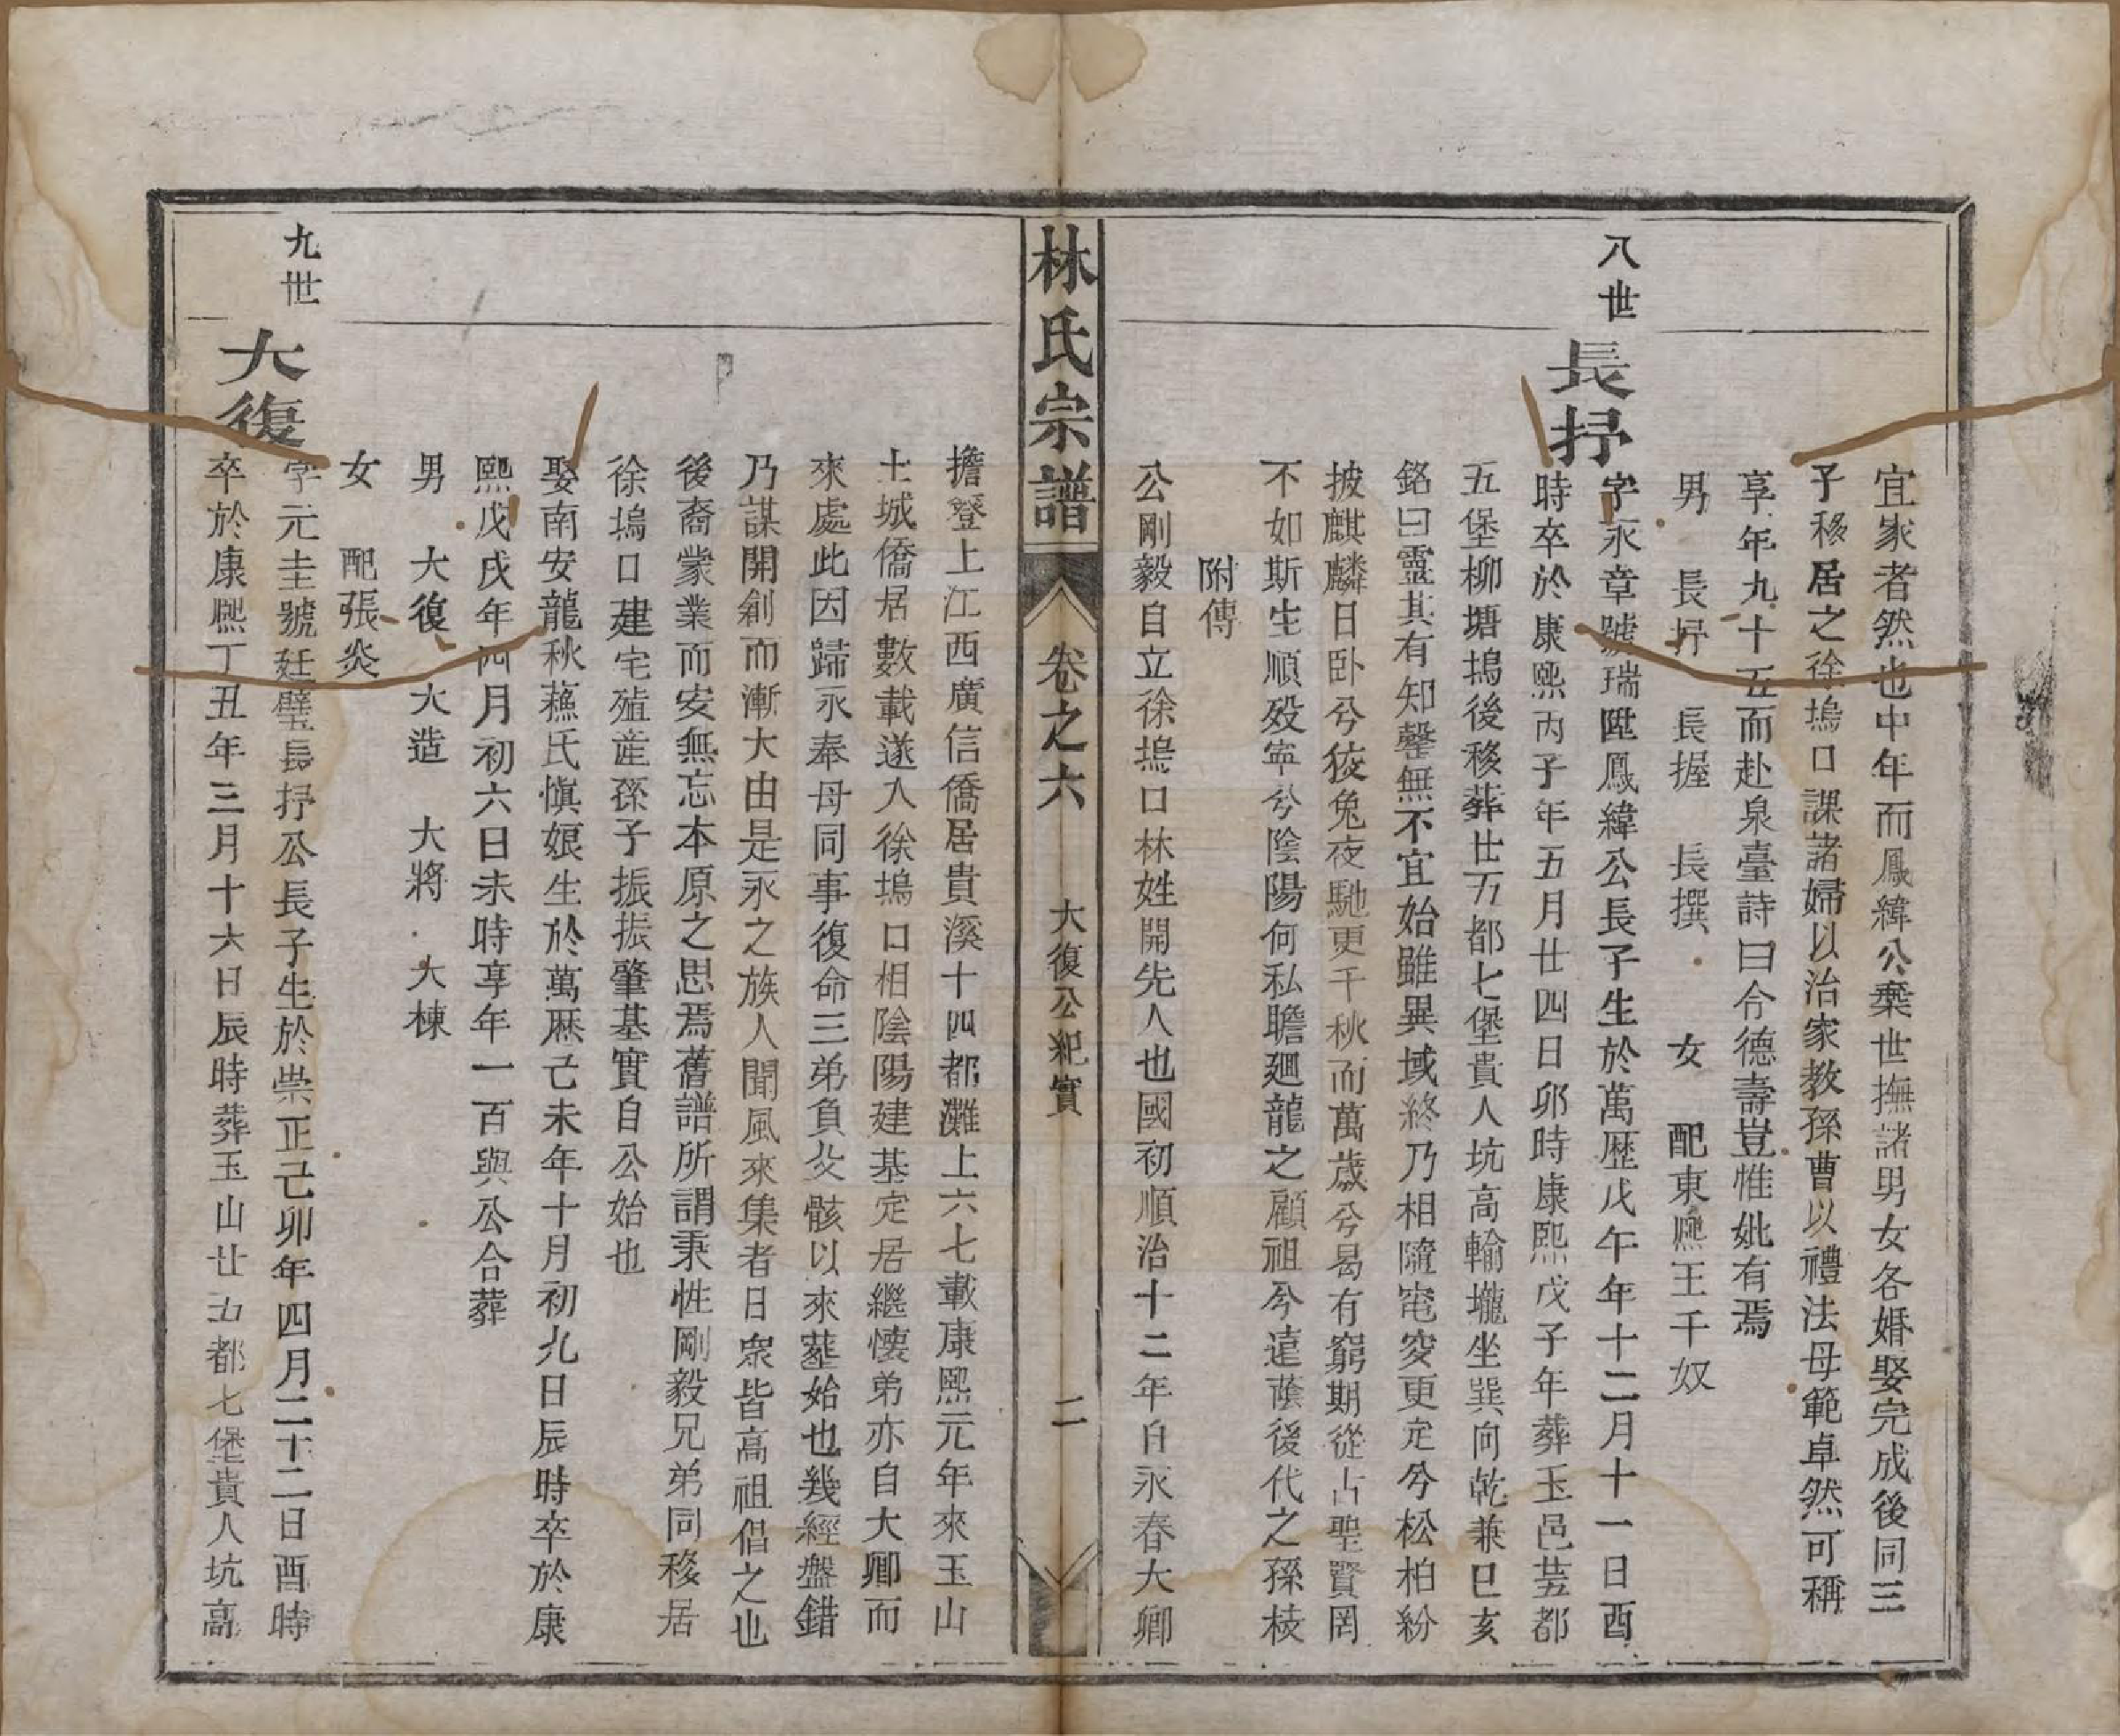 宜家者然也中年而鳳緯公棄世撫諸男女各婚娶完成後同三
子移居之徐塢口課諸婦以治家教孫曹以禮法母範卓然可稱
享年九十五而赴泉臺詩曰令德壽豈惟妣有焉
男 長抒 長握 長撰 女 配東熈王千奴
八世
長抒
字永章號瑞陞鳳緯公長子生於萬歷戊午年十二月十一日酉
時卒於康熙丙子年五月廿四日卯時康熙戊子年葬玉邑芸都
五堡柳塘塢後移葬廿五都七堡貴人坑高輪壠坐巽向乾兼巳亥
銘曰靈其有知罄無不宜始雖異域終乃相隨窀穸更定兮松柏紛
披麒麟日卧兮狡兔夜馳更千秋而萬歲兮曷有窮期從占聖賢罔
不如斯生順歿寧兮陰陽何私瞻廻龍之顧祖兮遠蔭後代之孫枝
附傳
公剛毅自立徐塢口林姓開先人也國初順治十二年自永春大卿
林氏宗譜
卷之六
大復公紀實
二
擔簦上江西廣信僑居貴溪十四都灘上六七載康熙元年來玉山
土城僑居數載遂入徐塢口相陰陽建基定居繼懐弟亦自大卿而
來處此因歸永奉母同事復命三弟負父骸以來塟始也幾經盤錯
乃謀開創而漸大由是永之族人聞風來集者日衆皆高祖倡之也
後裔蒙業而安無忘本原之思焉舊譜所謂秉性剛毅兄弟同移居
徐塢口建宅殖産孫子振振肇基實自公始也
娶南安龍秋蘓氏慎娘生於萬厯己未年十月初九日辰時卒於康
熙戊戌年四月初六日未時享年一百與公合葬
男 大復 大造 大將 大棟
女 配張炎
九世
大復
字元圭號廷璧長抒公長子生於崇正己卯年四月二十二日酉時
卒於康熙丁丑年三月十六日辰時葬玉山廿五都七堡貴人坑高